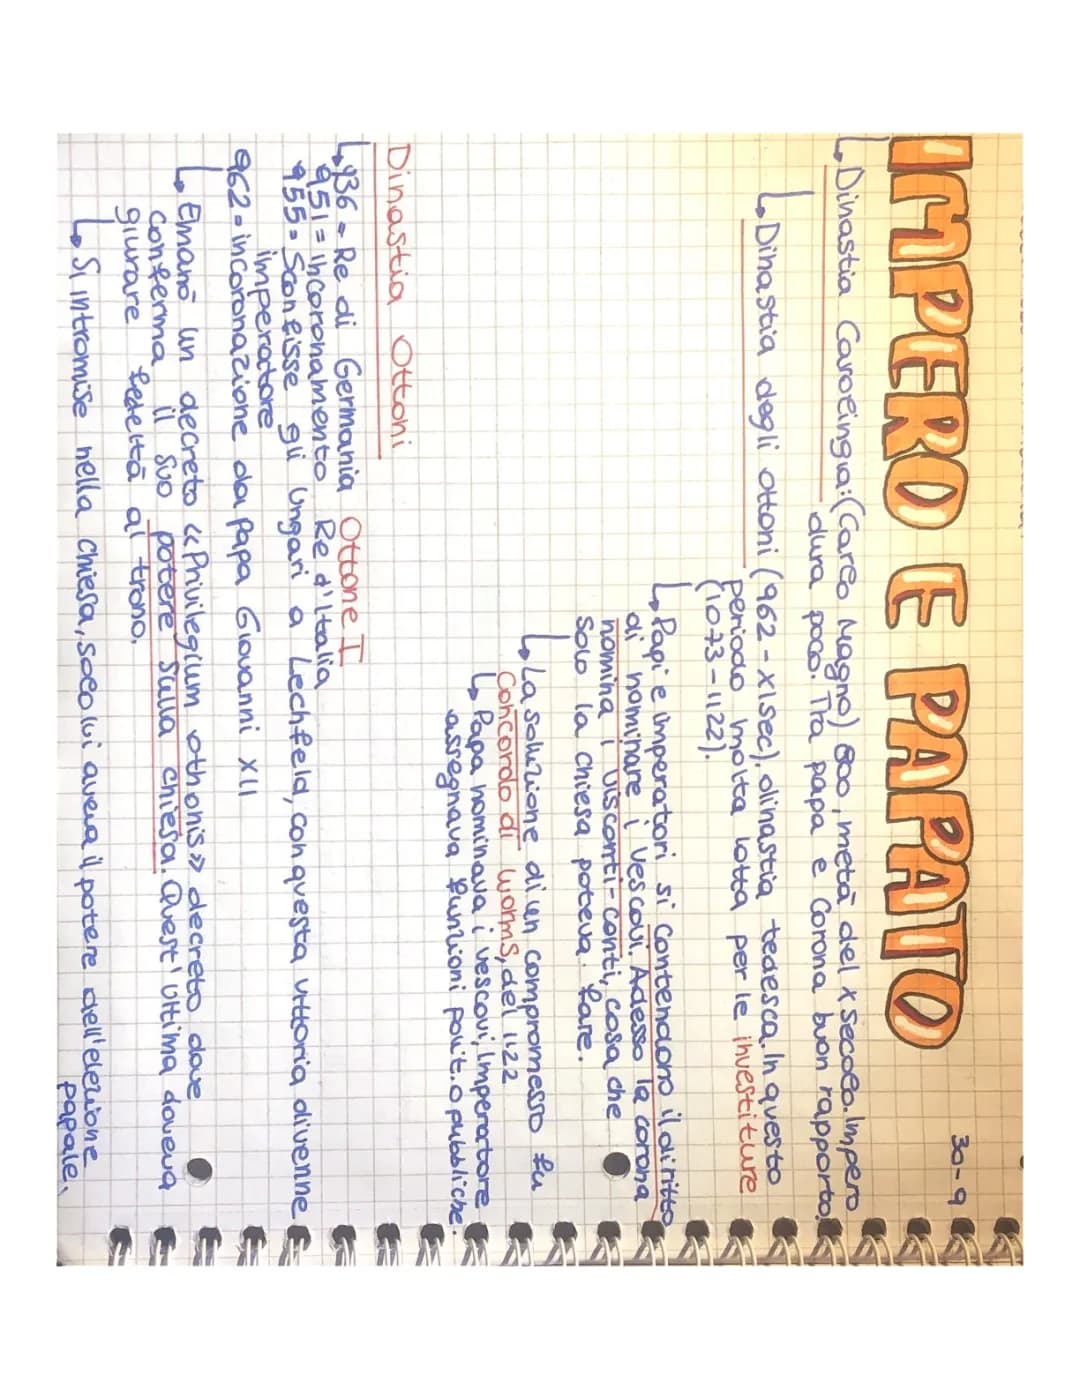 30-9
IMPERO E PAPATO
↳ Dinastia Carolingia: (Carlo Magno) 800, metà del X secolo. Impero
dura poco. Tra papa e Corona buon rapporto.
↳ Dinastia degli Ottoni (962-XI sec). dinastia tedesca. In questo
periodo molta lotta per le investiture
(1073-1122).
↳ Papi e imperatori si contendono il diritto
di nominare i vescovi. Adesso la corona
nomina i visconti-conti, cosa che
solo la chiesa poteva fare.
↳ La soluzione di un compromesso fu
Concordo di Worms, del 1122
↳ Papa nominava i vescovi, Imperatore
assegnava funzioni polit. o pubbliche.
Dinastia Ottoni
Ottone I
↳ 936 = Re di Germania
951 = incoronamento Re d'Italia
955 = Sconfisse gli Ungari a Lechfeld, con questa vittoria divenne
imperatore
962 = incoronazione da Papa Giovanni XII
↳ Emanò un decreto «Privilegium othonis» decreto dove
conferma il suo potere sulla chiesa. Quest'ultima doveva
giurare fedeltà al trono.
↳ Si intromise nella chiesa, solo lui aveva il potere dell'elezione
papale.